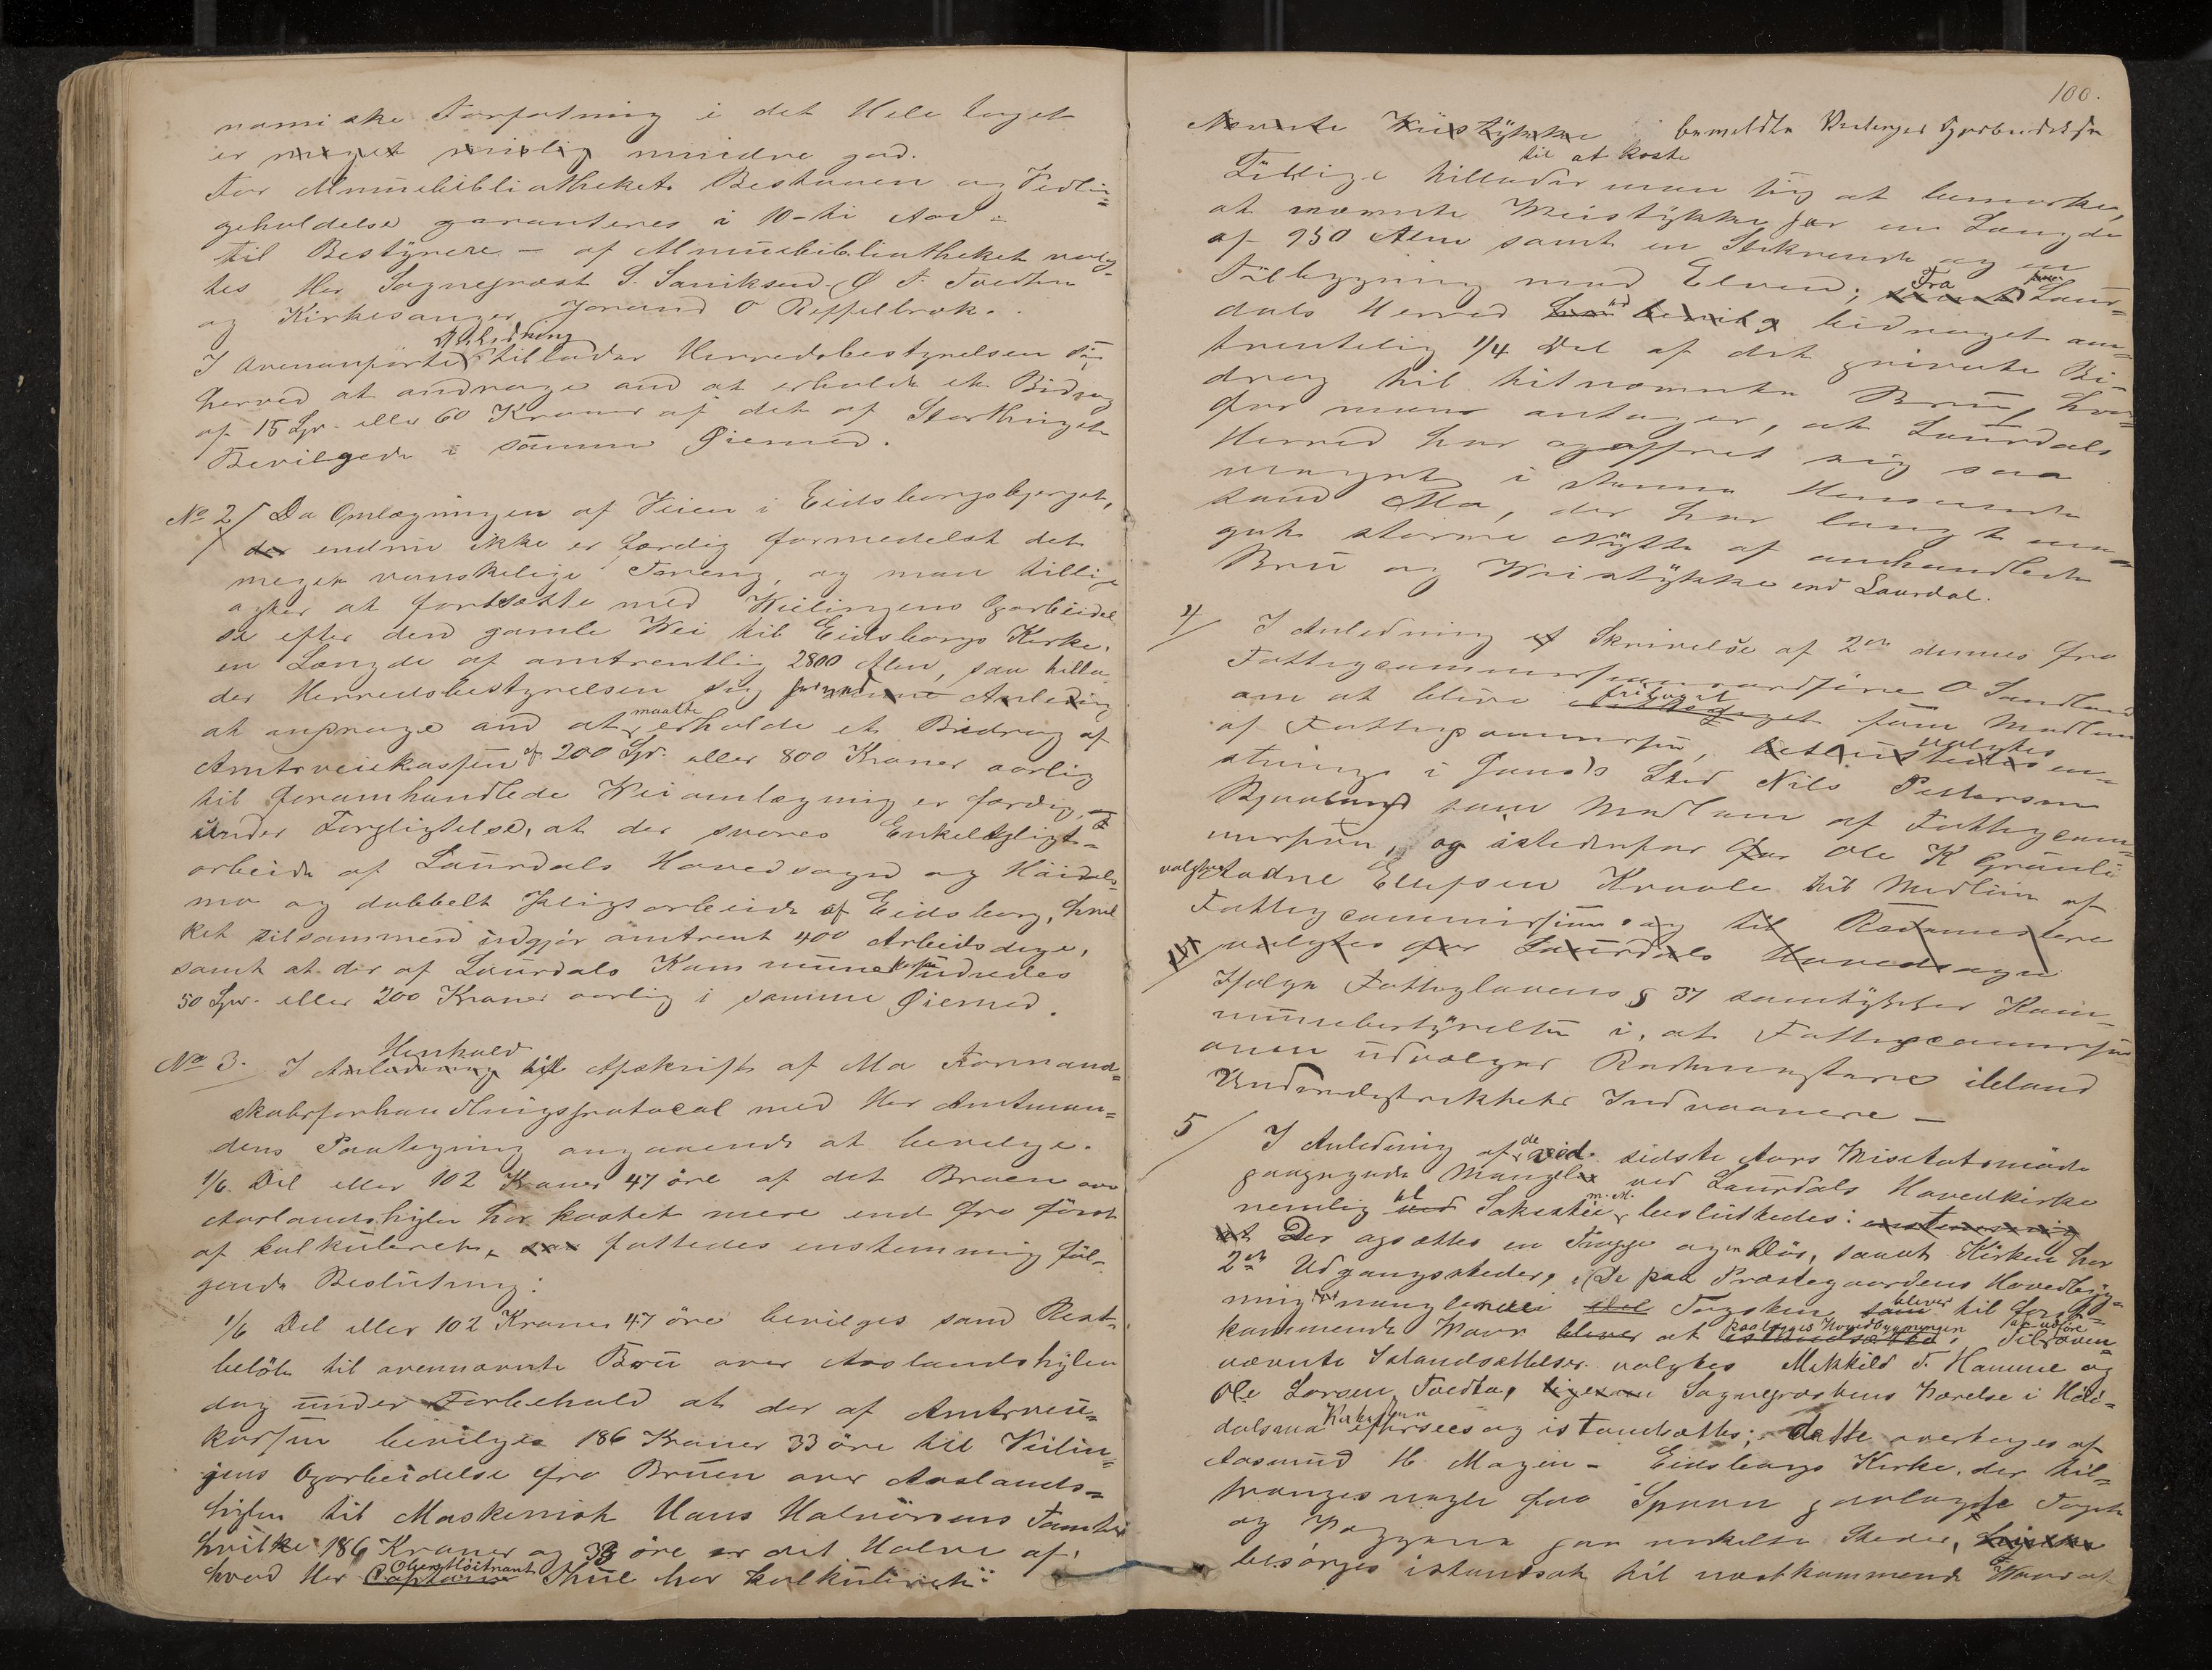 nomiske Forfatning i det Hele taget
er meget mislig mindre god.
For Almuebibliothekets Bestaaen og Vedli=
geholdelse garanteres i 10-ti Aar.
til Bestyrere - af Almuebibliotheket valg=
tes Her Sognepræst S. Saniksend. Ø T. Tvedten
og Kirkesanger Jorand O Reppelbrok.
Anledning
I ovenanførte tillader Herredsbestyrelsen sig
herved at andrage and at erholde et Bidrag
af 15 Spr. eller 60 Kroner af det af Storthinget
Bevilgede i samme Øiemed.
No 2/ Da Omlægningen af Veien i Eidsborgsbjerget,
der endnu ikke er færdig formedelst det
meget vanskelige Træng, og man tillige
agter at fortsætte med Veilingens Oparbeidel
se efter den gamle Vei til Eidsborgs Kirke,
en Længde af omtrentlig 2800 Alen, saa tilla
der Herredsbestyrelsen sig Anledning
at anprage and at maatte erholde et Bidrag af
Amtsveiekassen af 200 Spr. eller 800 Kroner aarlig
til foromhandlede Veiomlægning er færdig,
under Forpligtelse, at der svares Enkeltpligts=
arbeide af Laurdals Hovedsogn og Høidals=
mo og dobbelt Pligtsarbeide af Eidsborg, hvil
ket tilsammend udgjør omtrent 400 Arbeidsdage,
samt at der af Laurdals Kommunekasse udredes
50 Spr. eller 200 Kroner aarlig i samme Øiemed.
Henhold
No 3. I Anledning til Afskrift af Mo Formand=
skabsforhandlingsprotocol med Her Amtman=
dens Paategning angaaende at bevilge
1/6 Del eller 102 Kroner 47 öre af det Bruen over
Aaslandshylen har kostet mere end fra först
af kalkuleret, fattedes enstemmig föl=
gende Beslutning:
1/6 Del eller 102 Kroner 47 öre bevilges som Rest=
belöb til ovennævnte Bru over Aaslandshylen
dog under Forbehold at der af Amtsveie=
kassen bevilges 186 Kroner 33 öre til Veilin=
gens Oparbeidelse fra Bruen over Aaslands=
hylen til Maskenisk Hans Halvörsens Tomter
hvilke 186 Kroner og 33 öre er det Halve af,
Oberstlöitnant
hvad Her Captainen Thue har kalkuleret:
100.
Nævnte Veistykke bemeldte Veilenges Oparbeidelse
til at koste
Tillige tillader man sig at bemærke,
at nævnte Veistykke har en Længde
af 950 Alen samt en Stikrende og en
Tilbygning mod Elven; Fra Laur=
dals Herred bidraget om=
trentelig 1/4 Del af det private Bi=
drag til bemeldte Bru, hvor
for man antager, at Laurdals
Herred har opoffret sig saa
meget i denne Henseende
som Mo, der har langt me=
get større Nytte af omhandlede
Bru og Veistykke end Laurdal.
4/ I Anledning af Skrivelse af 2en dennes fra
Fattigcommissionsordfører O Sandland
om at blive fritaget som Medlem
af Fattigcommission, valgtes en=
stemmig i hans Sted Nils Pettersen
Bjaaland som Medlem af Fattigcom=
mission, og istedenfor for Ole K Grânli
valgtes Tadne Ellefsen Kraale til Medlem af
Fattigcommission og til Rodemestere
valgtes for Laurdals Hovedsogn
Ifølge Fattiglovens § 37 samtykker Kom=
munebestyrelsen i, at Fattigcommissi
onen udvælger Rodemestere ibland
Underdistriktets Indvaanere —
5/ I Anledning af de ved sidste Aars Visitatsmöde
paapegede Mangler ved Laurdals Hovedkirke
nemlig Sakestie m. M. besluttedes: enstemmig
at Der opsættes en Trappe og en Dör, samt Kirken har
2de Udgangssteder, De paa Præstegaardens Hovedbyg=
ning manglende Tagsten bliver til först=
kommende Vaar at paalægges Hovedbygningen. Til at udföre oven=
nævnte Istandsættelser valgtes Mikkild T. Hamme og
Ole Larsen Tvedta, Sognepræstens Værelse i Höi=
dalsmo Kirke efterseesog istandsættes; dette overtages af
Aasmund H. Mogen - Eidsborgs Kirke, der til=
trænges nogle faa Spaan paalagte Taget
og Væggene paa enkelte Steder,
besörges istandsat til næstkommende Vaar af